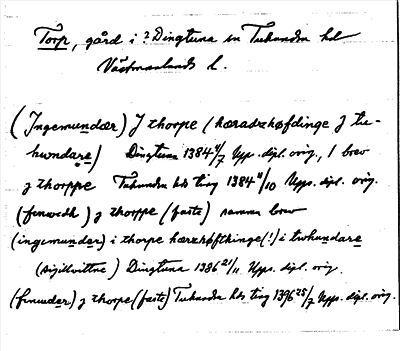 Torp, gård i ? Dingtuna sn Tuhundra hd
Västmanlands l.
(Ingemundær) J thorpe (hæradzhøfdinge J tu-
hundare) Dingtuna 1384 4/7 Upps. dipl. orig., 1 brev
j thorppe Tuhundra hds ting 1384 4/10 Upps. dipl. orig.
(finvidh) j thorppe (faste) samma brev
(ingemundar) i thorpe hærzhøfthinge (!) i twhundare
(sigillvittne) Dingtuna 1386 21/11 Upps. dipl. orig.
(finuidar) j thorpe (faste) Tuhundra hds ting 1396 25/7 Upps. dipl. orig.